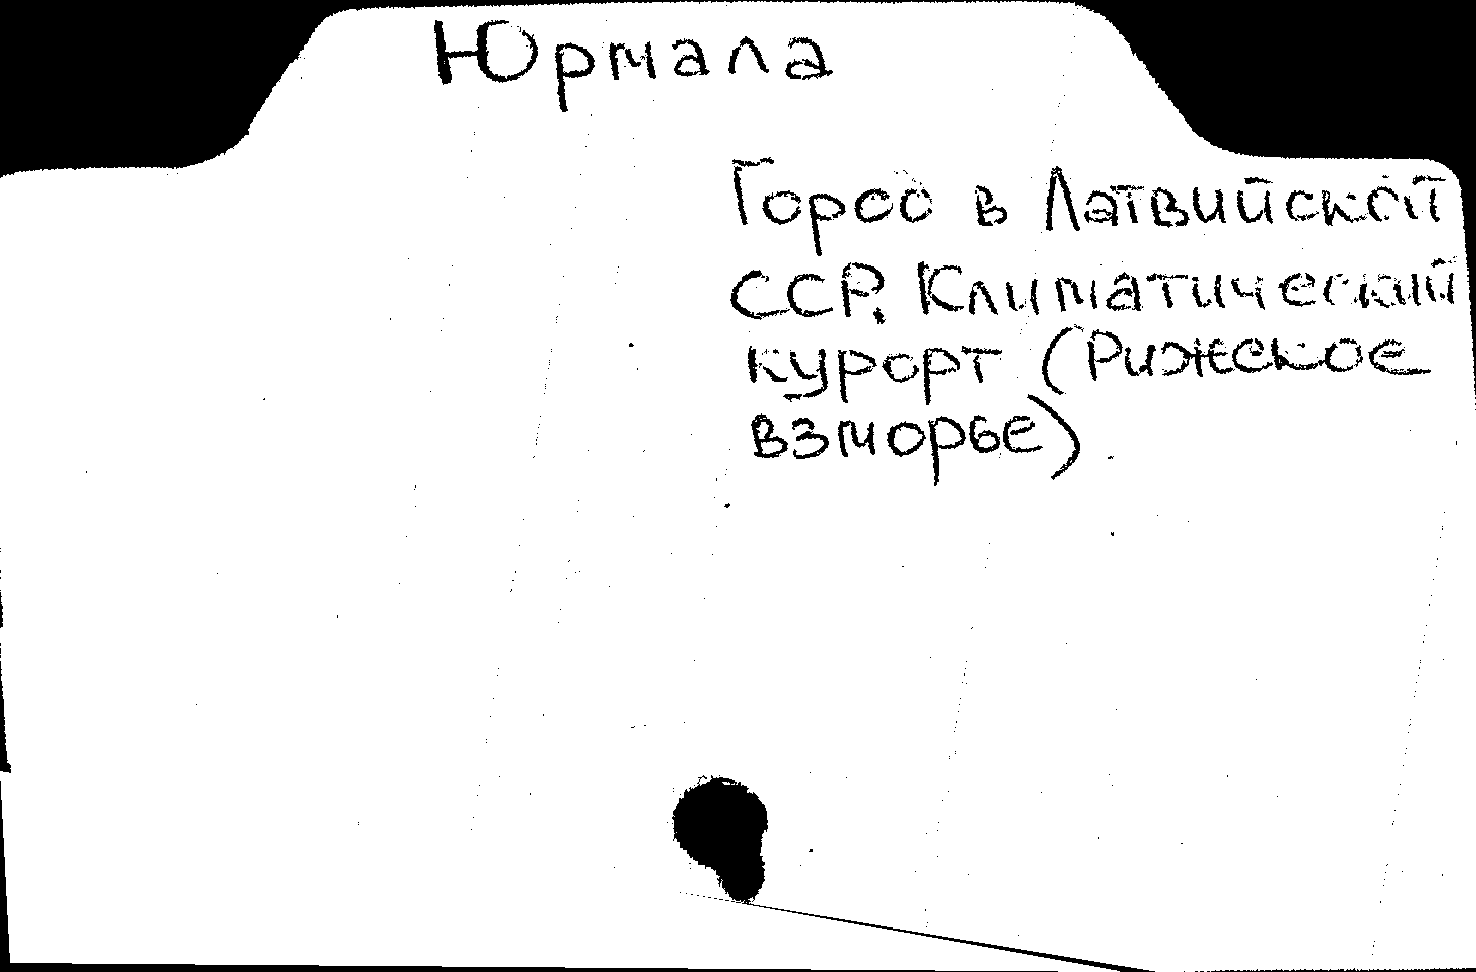 Юрмала
Город в Латвийской
ССР. Климатический
курорт (Рижское
взморье)